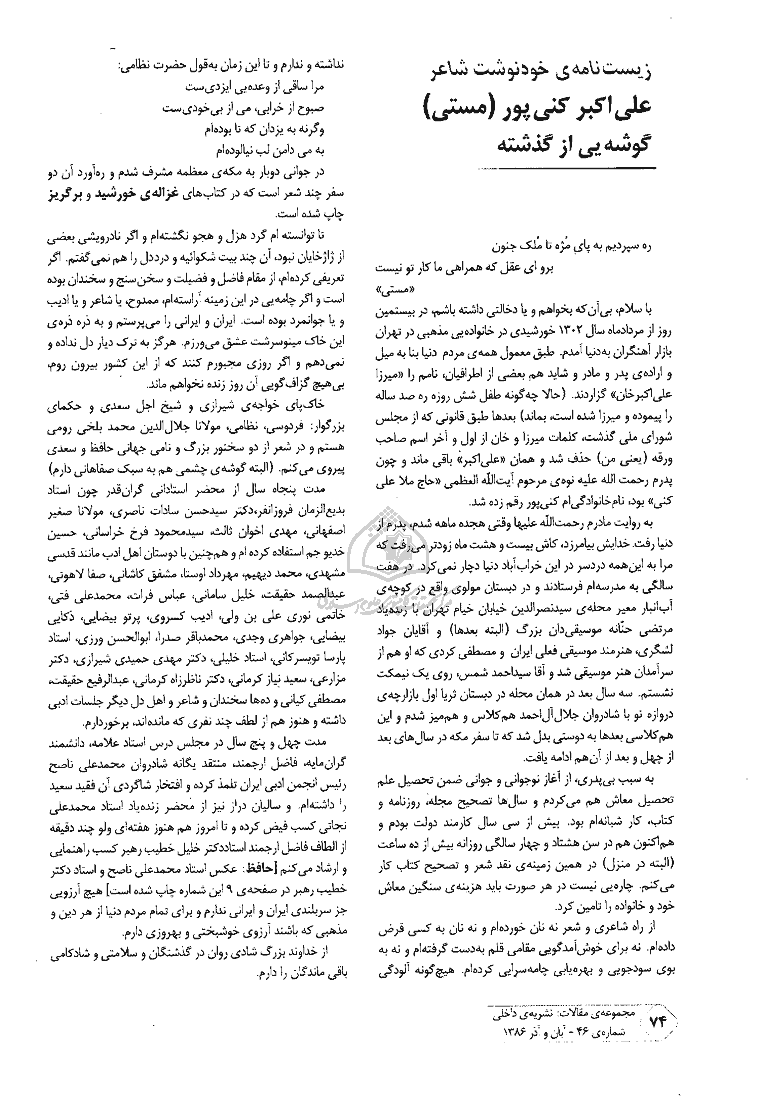 زیست‌نامه‌ی خودنوشت شاعر
علی‌اکبر کنی‌پور (مستی)
گوشه‌یی از گذشته
ره سپردیم به پایِ مُژه تا مُلک جنون
برو ای عقل که همراهی ما کار تو نیست
«مستی»
با سلام، بی‌آن‌که بخواهم و یا دخالتی داشته باشم، در بیستمین
روز از مردادماه سال ۱۳۰۲ خورشیدی در خانواده‌یی مذهبی در تهران
بازار آهنگران به‌دنیا آمدم. طبق معمول همه‌ی مردم دنیا بنا به میل
و اراده‌ی پدر و مادر و شاید هم بعضی از اطرافیان، نامم را «میرزا
علی‌اکبرخان» گزاردند. (حالا چه‌گونه طفل شش روزه ره صد ساله
را پیموده و میرزا شده است، بماند) بعدها طبق قانونی که از مجلس
شورای ملی گذشت، کلمات میرزا و خان از اول و آخر اسم صاحب
ورقه (یعنی من) حذف شد و همان «علی‌اکبر» باقی ماند و چون
پدرم رحمت الله علیه نوه‌ی مرحوم آیت‌الله العظمی «حاج ملا علی
کنی» بود، نام‌خانوادگی‌ام کنی‌پور رقم زده شد.
به روایت مادرم رحمت‌الله علیها وقتی هجده ماهه شدم، پدرم از
دنیا رفت. خدایش بیامرزد، کاش بیست و هشت ماه زودتر می‌رفت که
مرا به این‌همه دردسر در این خراب‌آباد دنیا دچار نمی‌کرد. در هفت
سالگی به مدرسه‌ام فرستادند و در دبستان مولوی واقع در کوچه‌ی
آب‌انبار معیر محله‌ی سیدنصرالدین خیابان خیام تهران با زنده‌یاد
مرتضی حنّانه موسیقی‌دان بزرگ (البته بعدها) و آقایان جواد
لشگری، هنرمند موسیقی فعلی ایران و مصطفی کردی که او هم از
سرآمدان هنر موسیقی شد و آقا سیداحمد شمس، روی یک نیمکت
نشستم. سه سال بعد در همان محله در دبستان ثریا اول بازارچه‌ی
دروازه نو با شادروان جلال‌آل‌احمد هم‌کلاس و هم‌میز شدم و این
هم‌کلاسی بعدها به دوستی بدل شد که تا سفر مکه در سال‌های بعد
از چهل و بعد از آن‌هم ادامه یافت.
به سبب بی‌پدری، از آغاز نوجوانی و جوانی ضمن تحصیل علم
تحصیل معاش هم می‌کردم و سال‌ها تصحیح مجله، روزنامه و
کتاب، کار شبانه‌ام بود. بیش از سی سال کارمند دولت بودم و
هم‌اکنون هم در سن هشتاد و چهار سالگی روزانه بیش از ده ساعت
(البته در منزل) در همین زمینه‌ی نقد شعر و تصحیح کتاب کار
می‌کنم. چاره‌یی نیست در هر صورت باید هزینه‌ی سنگین معاش
خود و خانواده را تامین کرد.
از راه شاعری و شعر نه نان خورده‌ام و نه نان به کسی قرض
داده‌ام. نه برای خوش‌آمدگویی مقامی قلم به‌دست گرفته‌ام و نه به
بوی سودجویی و بهره‌یابی چامه‌سرایی کرده‌ام. هیچ‌گونه آلودگی
نداشته و ندارم و تا این زمان به‌قول حضرت نظامی:
مرا ساقی از وعده‌یی ایزدی‌ست
صبوح از خرابی، می از بی‌خودی‌ست
وگرنه به یزدان که تا بوده‌ام
به می دامن لب نیالوده‌ام
در جوانی دوبار به مکه‌ی معظمه مشرف شدم و ره‌آورد آن دو
سفر چند شعر است که در کتاب‌های غزاله‌ی خورشید و برگریز
چاپ شده است.
تا توانسته ام گرد هزل و هجو نگشته‌ام و اگر نادرویشی بعضی
از ژاژخایان نبود، آن چند بیت شکوائیه و درددل را هم نمی‌گفتم. اگر
تعریفی کرده‌ام، از مقام فاضل و فضیلت و سخن‌سنج و سخندان بوده
است و اگر چامه‌یی در این زمینه آراسته‌ام، ممدوح، یا شاعر و یا ادیب
و یا جوانمرد بوده است. ایران و ایرانی را می‌پرستم و به ذره ذره‌ی
این خاک مینوسرشت عشق می‌ورزم. هرگز به ترک دیار دل نداده و
نمی‌دهم و اگر روزی مجبورم کنند که از این کشور بیرون روم،
بی‌هیچ گزاف‌گویی آن روز زنده نخواهم ماند.
خاک‌پای خواجه‌ی شیرازی و شیخ اجل سعدی و حکمای
بزرگوار: فردوسی، نظامی، مولانا جلال‌الدین محمد بلخی رومی
هستم و در شعر از دو سخنور بزرگ و نامی جهانی حافظ و سعدی
پیروی می‌کنم. (البته گوشه‌ی چشمی هم به سبک صفاهانی دارم)
مدت پنجاه سال از محضر استادانی گران‌قدر چون استاد
بدیع‌الزمان فروزانفر،دکتر سیدحسن سادات ناصری، مولانا صغیر
اصفهانی، مهدی اخوان ثالث، سیدمحمود فرخ خراسانی، حسین
خدیو جم استفاده کرده ام و هم‌چنین با دوستان اهل ادب مانند قدسی
مشهدی، محمد دیهیم، مهرداد اوستا، مشفق کاشانی، صفا لاهوتی،
عبدالصمد حقیقت، خلیل سامانی، عباس فرات، محمدعلی فتی،
خاتمی نوری علی بن ولی، ادیب کسروی، پرتو بیضایی، ذکایی
بیضایی، جواهری وجدی، محمدباقر صدرا، ابوالحسن ورزی، استاد
پارسا تویسرکانی، استاد خلیلی، دکتر مهدی حمیدی شیرازی، دکتر
مزارعی، سعید نیاز کرمانی، دکتر ناظرزاه کرمانی، عبدالرفیع حقیقت،
مصطفی کیانی و ده‌ها سخندان و شاعر و اهل دل دیگر جلسات ادبی
داشته و هنوز هم از لطف چند نفری که مانده‌اند، برخوردارم.
مدت چهل و پنج سال در مجلس درس استاد علامه، دانشمند
گران‌مایه، فاضل ارجمند، منتقد یگانه شادروان محمدعلی ناصح
رئیس انجمن ادبی ایران تلمذ کرده و افتخار شاگردی آن فقید سعید
را داشته‌ام. و سالیان دراز نیز از محضر زنده‌یاد استاد محمدعلی
نجاتی کسب فیض کرده و تا امروز هم هنوز هفته‌ای ولو چند دقیقه
از الطاف فاضل ارجمند استاددکتر خلیل خطیب رهبر کسب راهنمایی
و ارشاد می‌کنم [حافظ: عکس استاد محمدعلی ناصح و استاد دکتر
خطیب رهبر در صفحه‌ی ۹ این شماره چاپ شده است] هیچ آرزویی
جز سربلندی ایران و ایرانی ندارم و برای تمام مردم دنیا از هر دین و
مذهبی که باشند آرزوی خوشبختی و بهروزی دارم.
از خداوند بزرگ شادی روان در گذشتگان و سلامتی و شادکامی
باقی ماندگان را دارم.
۷۴
مجموعه‌ی مقالات: نشریه‌ی داخلی
شماره‌ی ۴۶ - آبان و آذر ۱۳۸۶